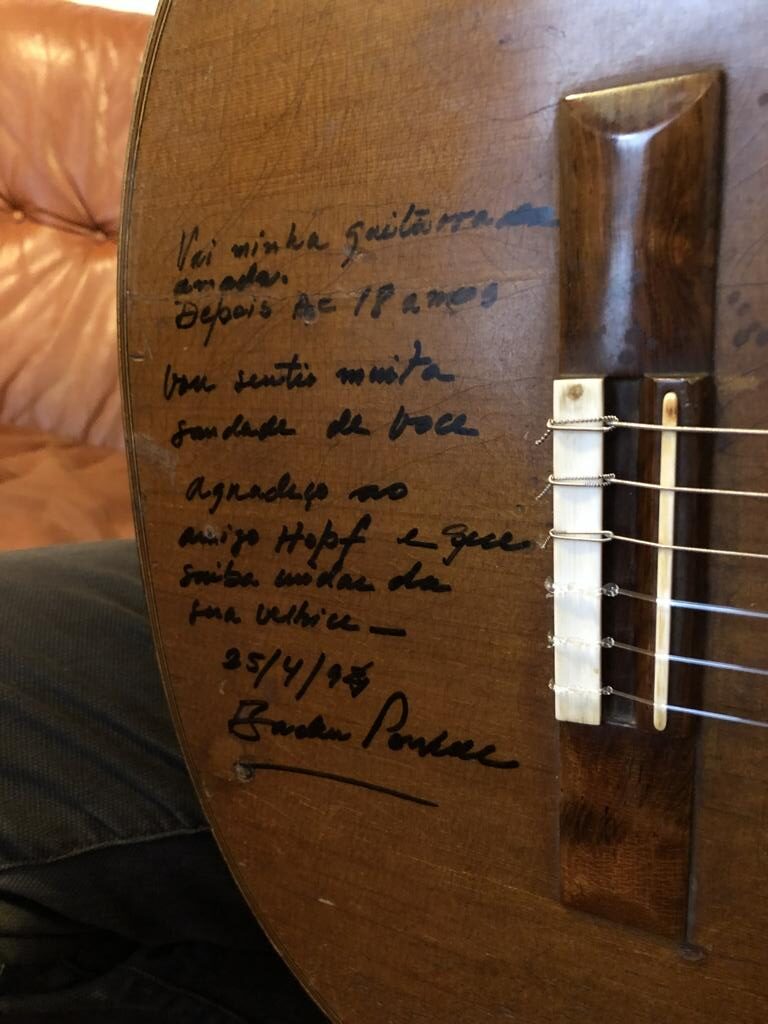 Vai minha guitarra
amada.
Depois de 18 anos
vou sentir muita
saudade de voce
agradeço ao
amigo Hopf e que
saiba cuidar da
sua velhice —
25/4/
Baden Powell